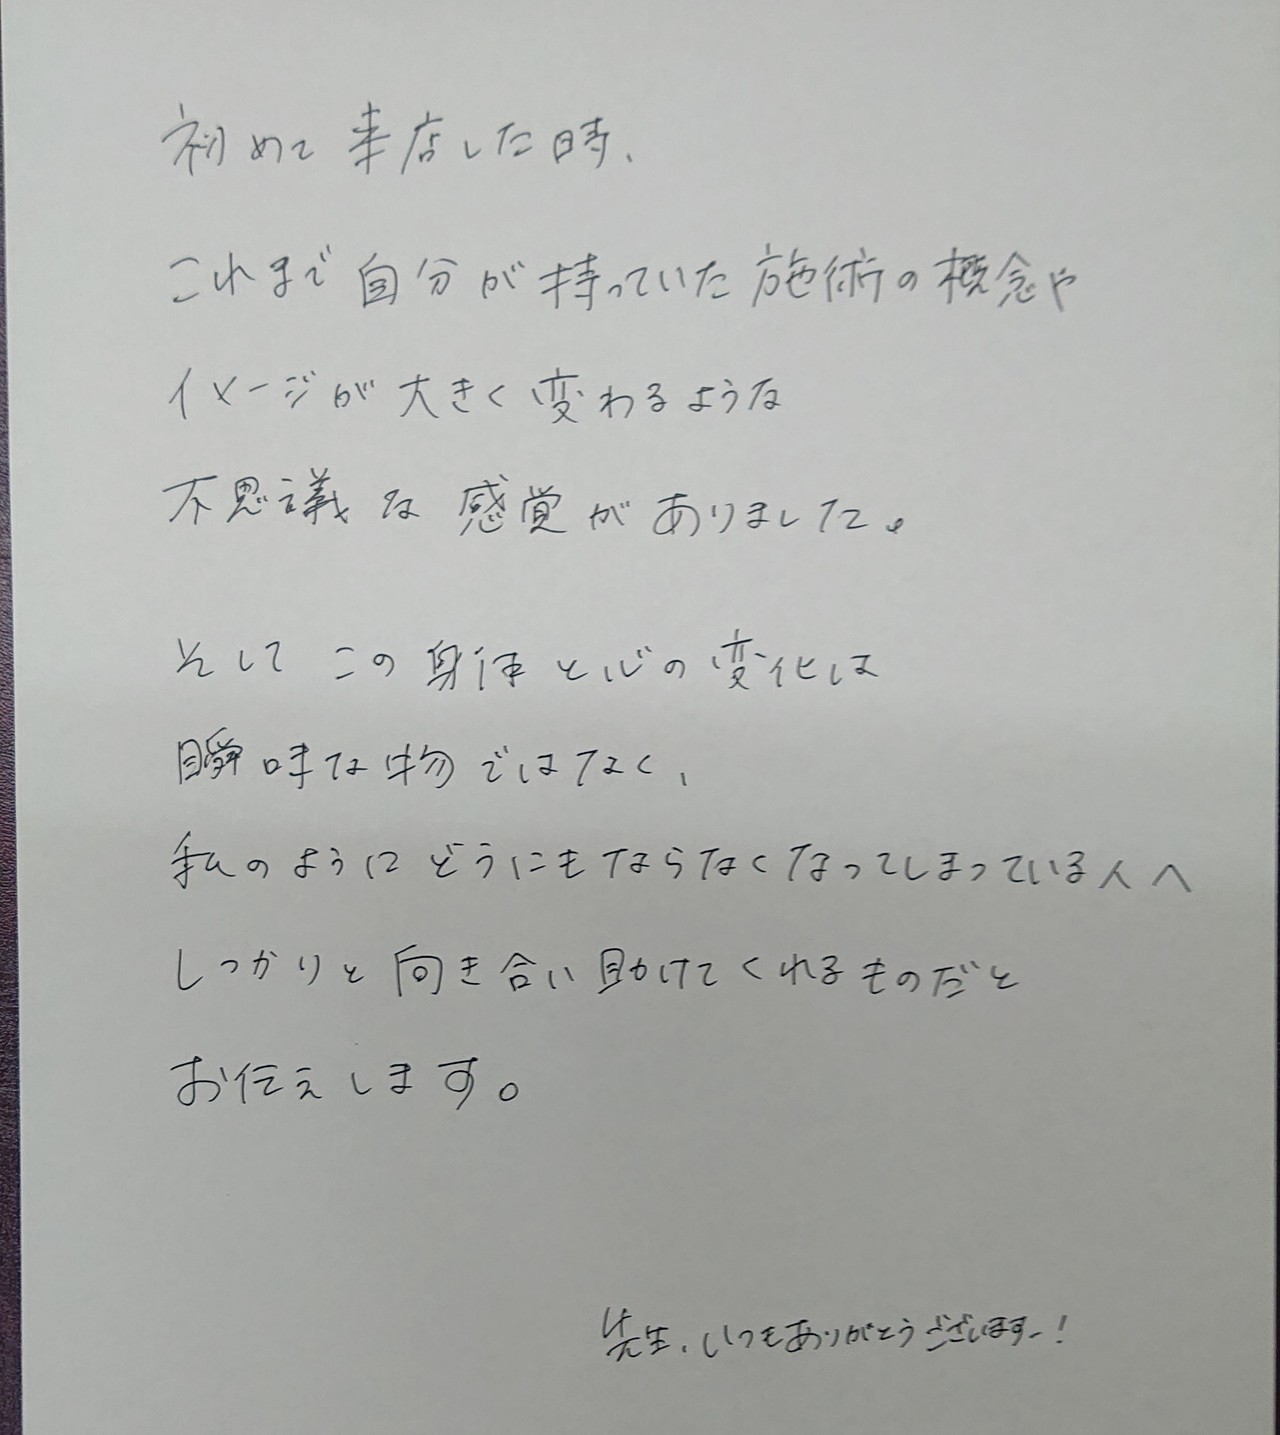 初めて来店した時、
これまで自分が持っていた施術の概念や
イメージが大きく変わるような
不思議な感覚がありました。
そしてこの身体と心の変化は
瞬時な物ではなく、
私のようにどうにもならなくなってしまっている人へ
しっかりと向き合い助けてくれるものだと
お伝えします。
先生、いつもありがとうございますー!